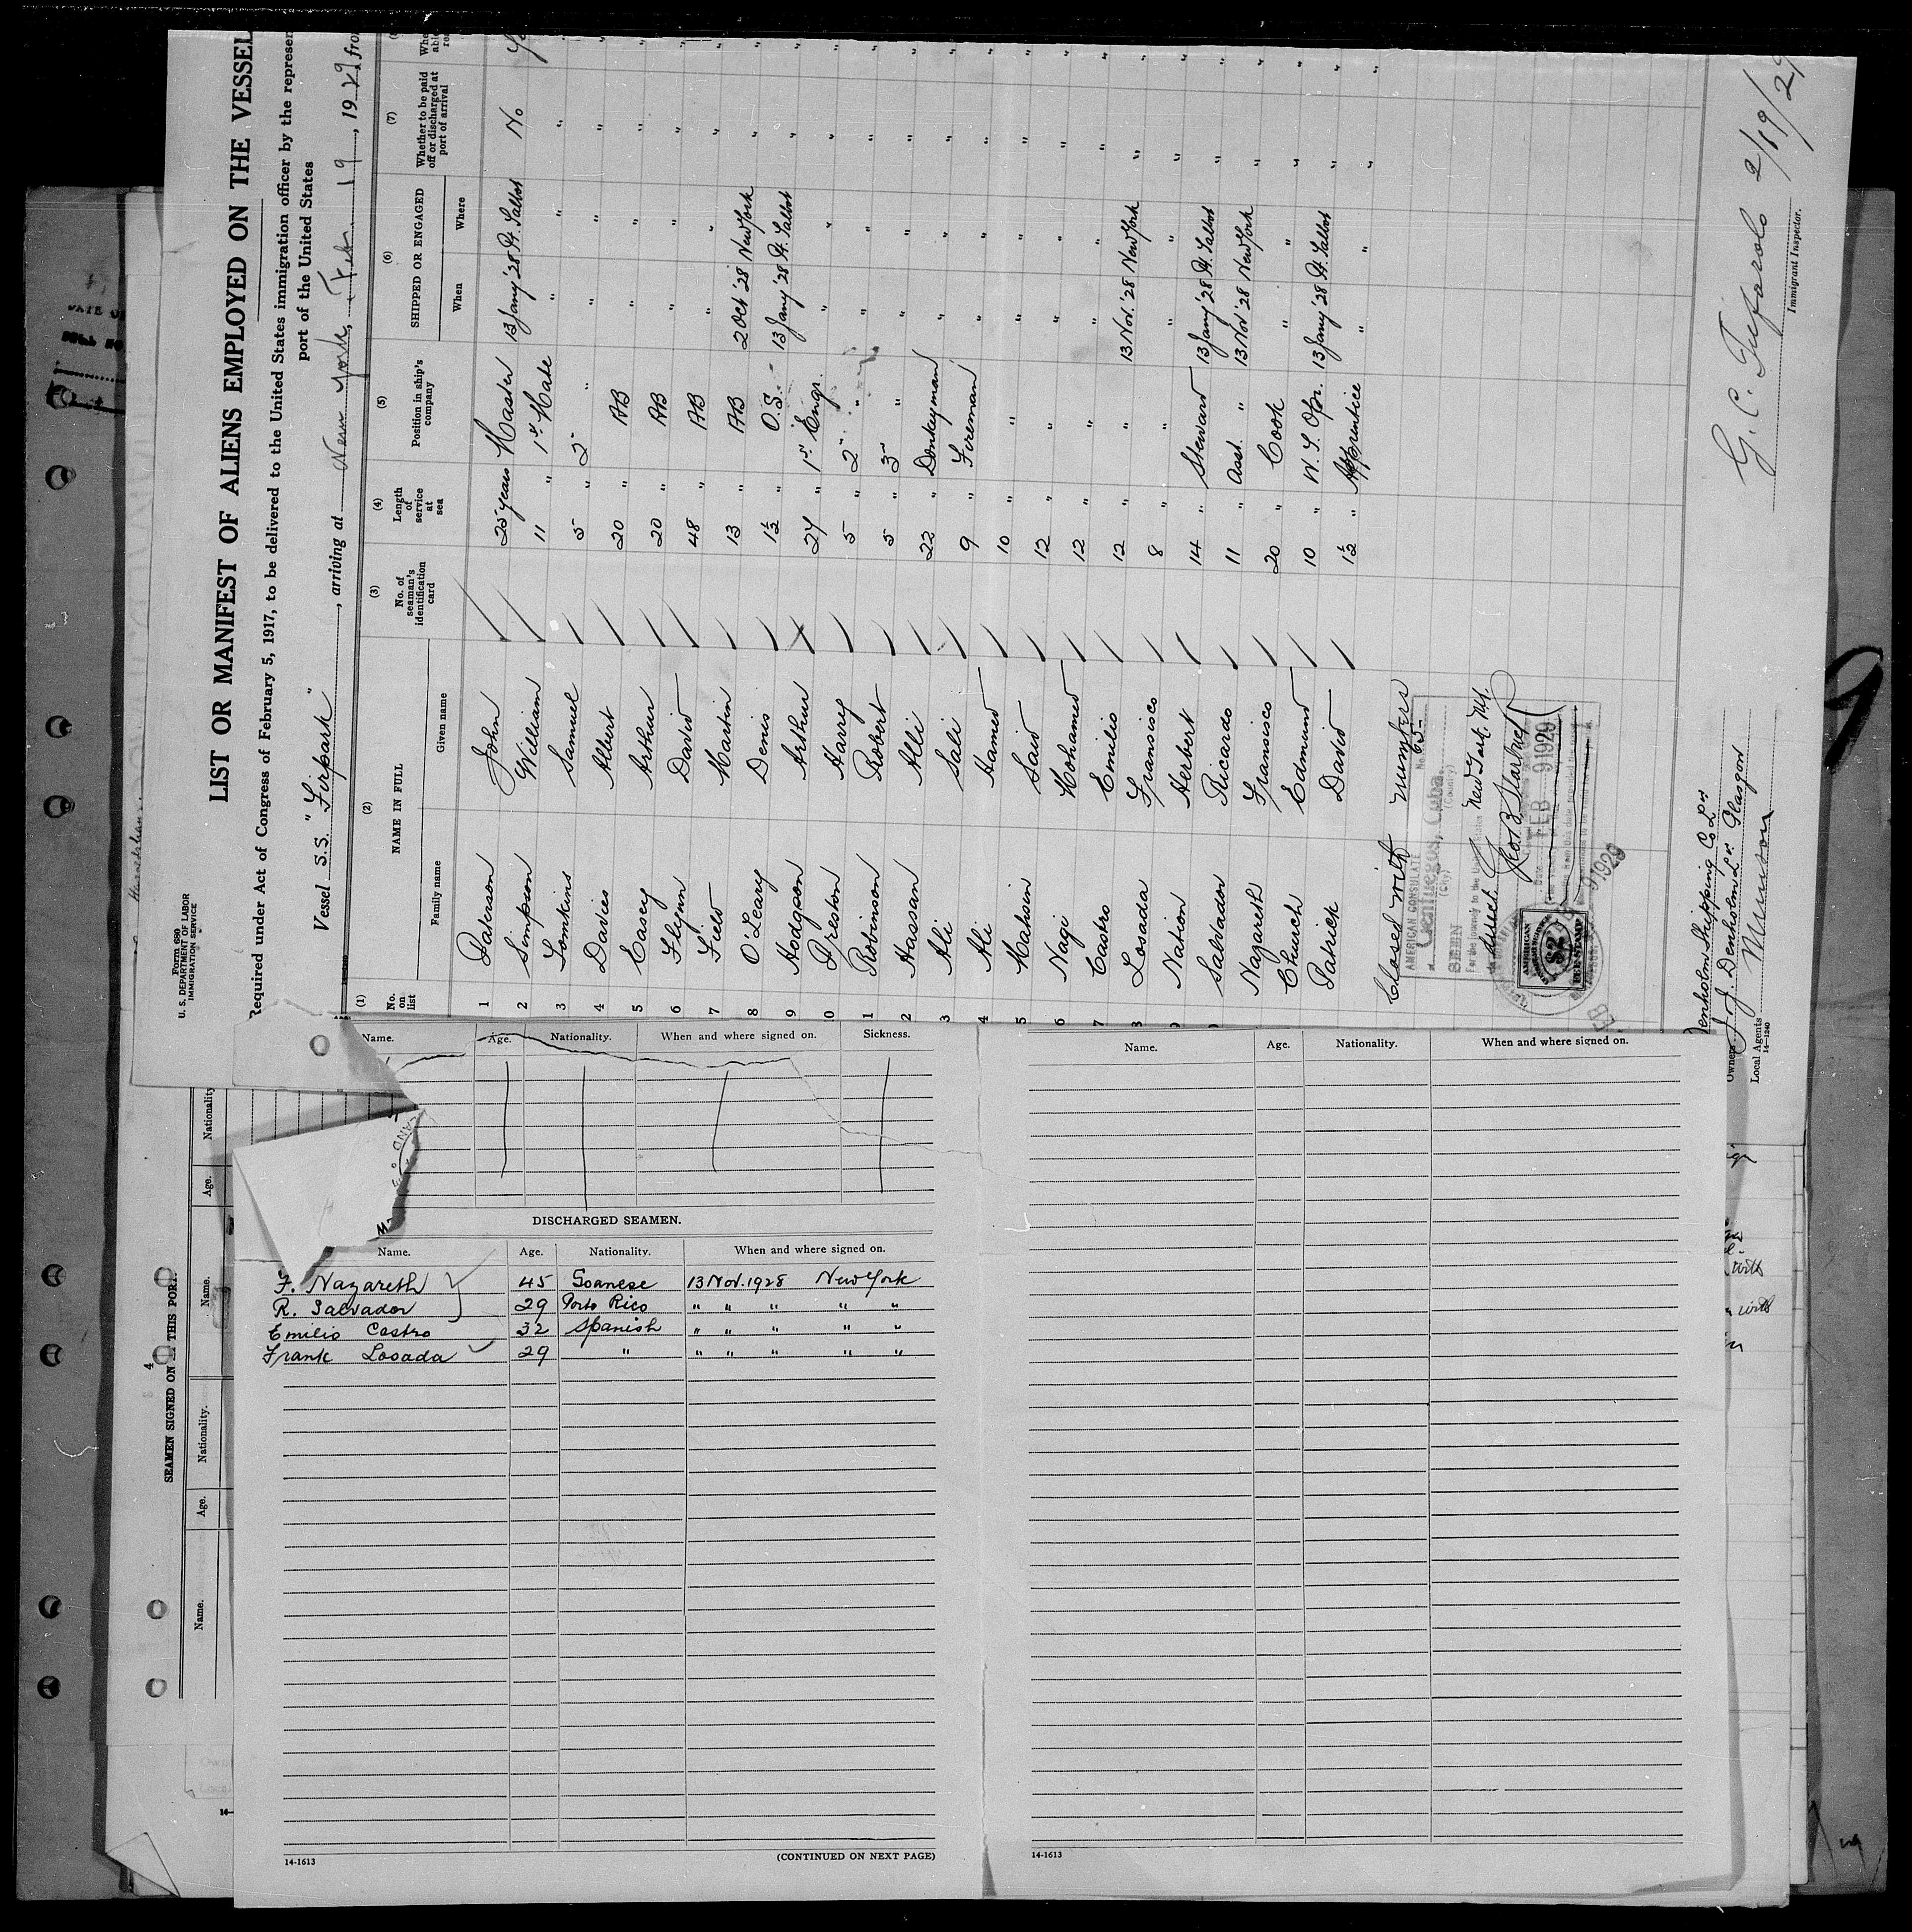 Form 680
U. S. DEPARTMENT OF LABOR
IMMIGRATION SERVICE
LIST OR MANIFEST OF ALIENS EMPLOYED ON THE VESSEL
Required under Act of Congress of February 5, 1917, to be delivered to the United States immigration officer by the represen
port of the United States
Vessel S.S. "Firpark", arriving at New York, Feb. 19, 1929, fro
(1) (2) (3) (4) (5) (6) (7)
No. on list NAME IN FULL No. of seaman's identification card Length of service at sea Position in ship's company SHIPPED OR ENGAGED Whether to be paid off or discharged at port of arrival
Family name Given name When Where
1 Paterson John 25 years Master 13 Jany '28 Pt. Talbot No
2 Simpson William 11 " 1st Mate " " "
3 Tomkins Samuel 5 " 2 " " " "
4 Davies Albert 20 " AB " " "
5 Casey Arthur 20 " AB " " "
6 Flynn David 48 " AB " " "
7 Field Martin 13 " AB 2 Oct '28 New York "
8 O'Leary Denis 1½ " O.S. 13 Jany '28 Pt. Talbot "
9 Hodgson Arthur 24 " 1st Engr. " " "
10 Preston Harry 5 " 2 " " " "
1 Robinson Robert 5 " 3 " " " "
2 Hassan Alli 22 " Donkeyman " " "
3 Ali Sali 9 " Fireman " " "
4 Ali Hamed 10 " " " " "
5 Mahsin Said 12 " " " " "
6 Nagi Mohamed 12 " " " " "
7 Castro Emilio 12 " " 13 Nov. '28 New York "
8 Losada Fransisco 8 " " " " "
9 Nation Herbert 14 " Steward 13 Jany '28 Pt. Talbot "
Salvador Ricardo 11 " Asst. " 13 Nov '28 New York "
Nazareth Fransisco 20 " Cook " " "
Church Edmund 10 " W. T. Opr. 13 Jany '28 Pt. Talbot "
Patrick David 1½ " Apprentice " " "
Closed with numbers
AMERICAN CONSULATE No. 65
at Cienfuegos, Cuba.
(City) (Country)
SEEN
For the journey to the United States
New York, N.Y.
FEB 9 1929
AMERICAN
$2
FEE STAMP
Denholm Shipping Co Ld
Owners J. J. Denholm Ld. Glasgow
Local Agents Munson
14-1240
G. C. Tufarolo 2/19/29
Immigrant Inspector.
9
4
SEAMEN SIGNED ON AT THIS PORT.
Name. Age. Nationality. Name. Age. Nationality
Name. Age. Nationality. When and where signed on. Sickness.
DISCHARGED SEAMEN.
Name. Age. Nationality. When and where signed on.
F. Nazareth 45 Goanese 13 Nov. 1928 New York
R. Salvador 29 Porto Rico " " " " "
Emilio Castro 32 Spanish " " " " "
Frank Losada 29 " " " " " "
14-1613 (CONTINUED ON NEXT PAGE)
Name. Age. Nationality. When and where signed on.
14-1613